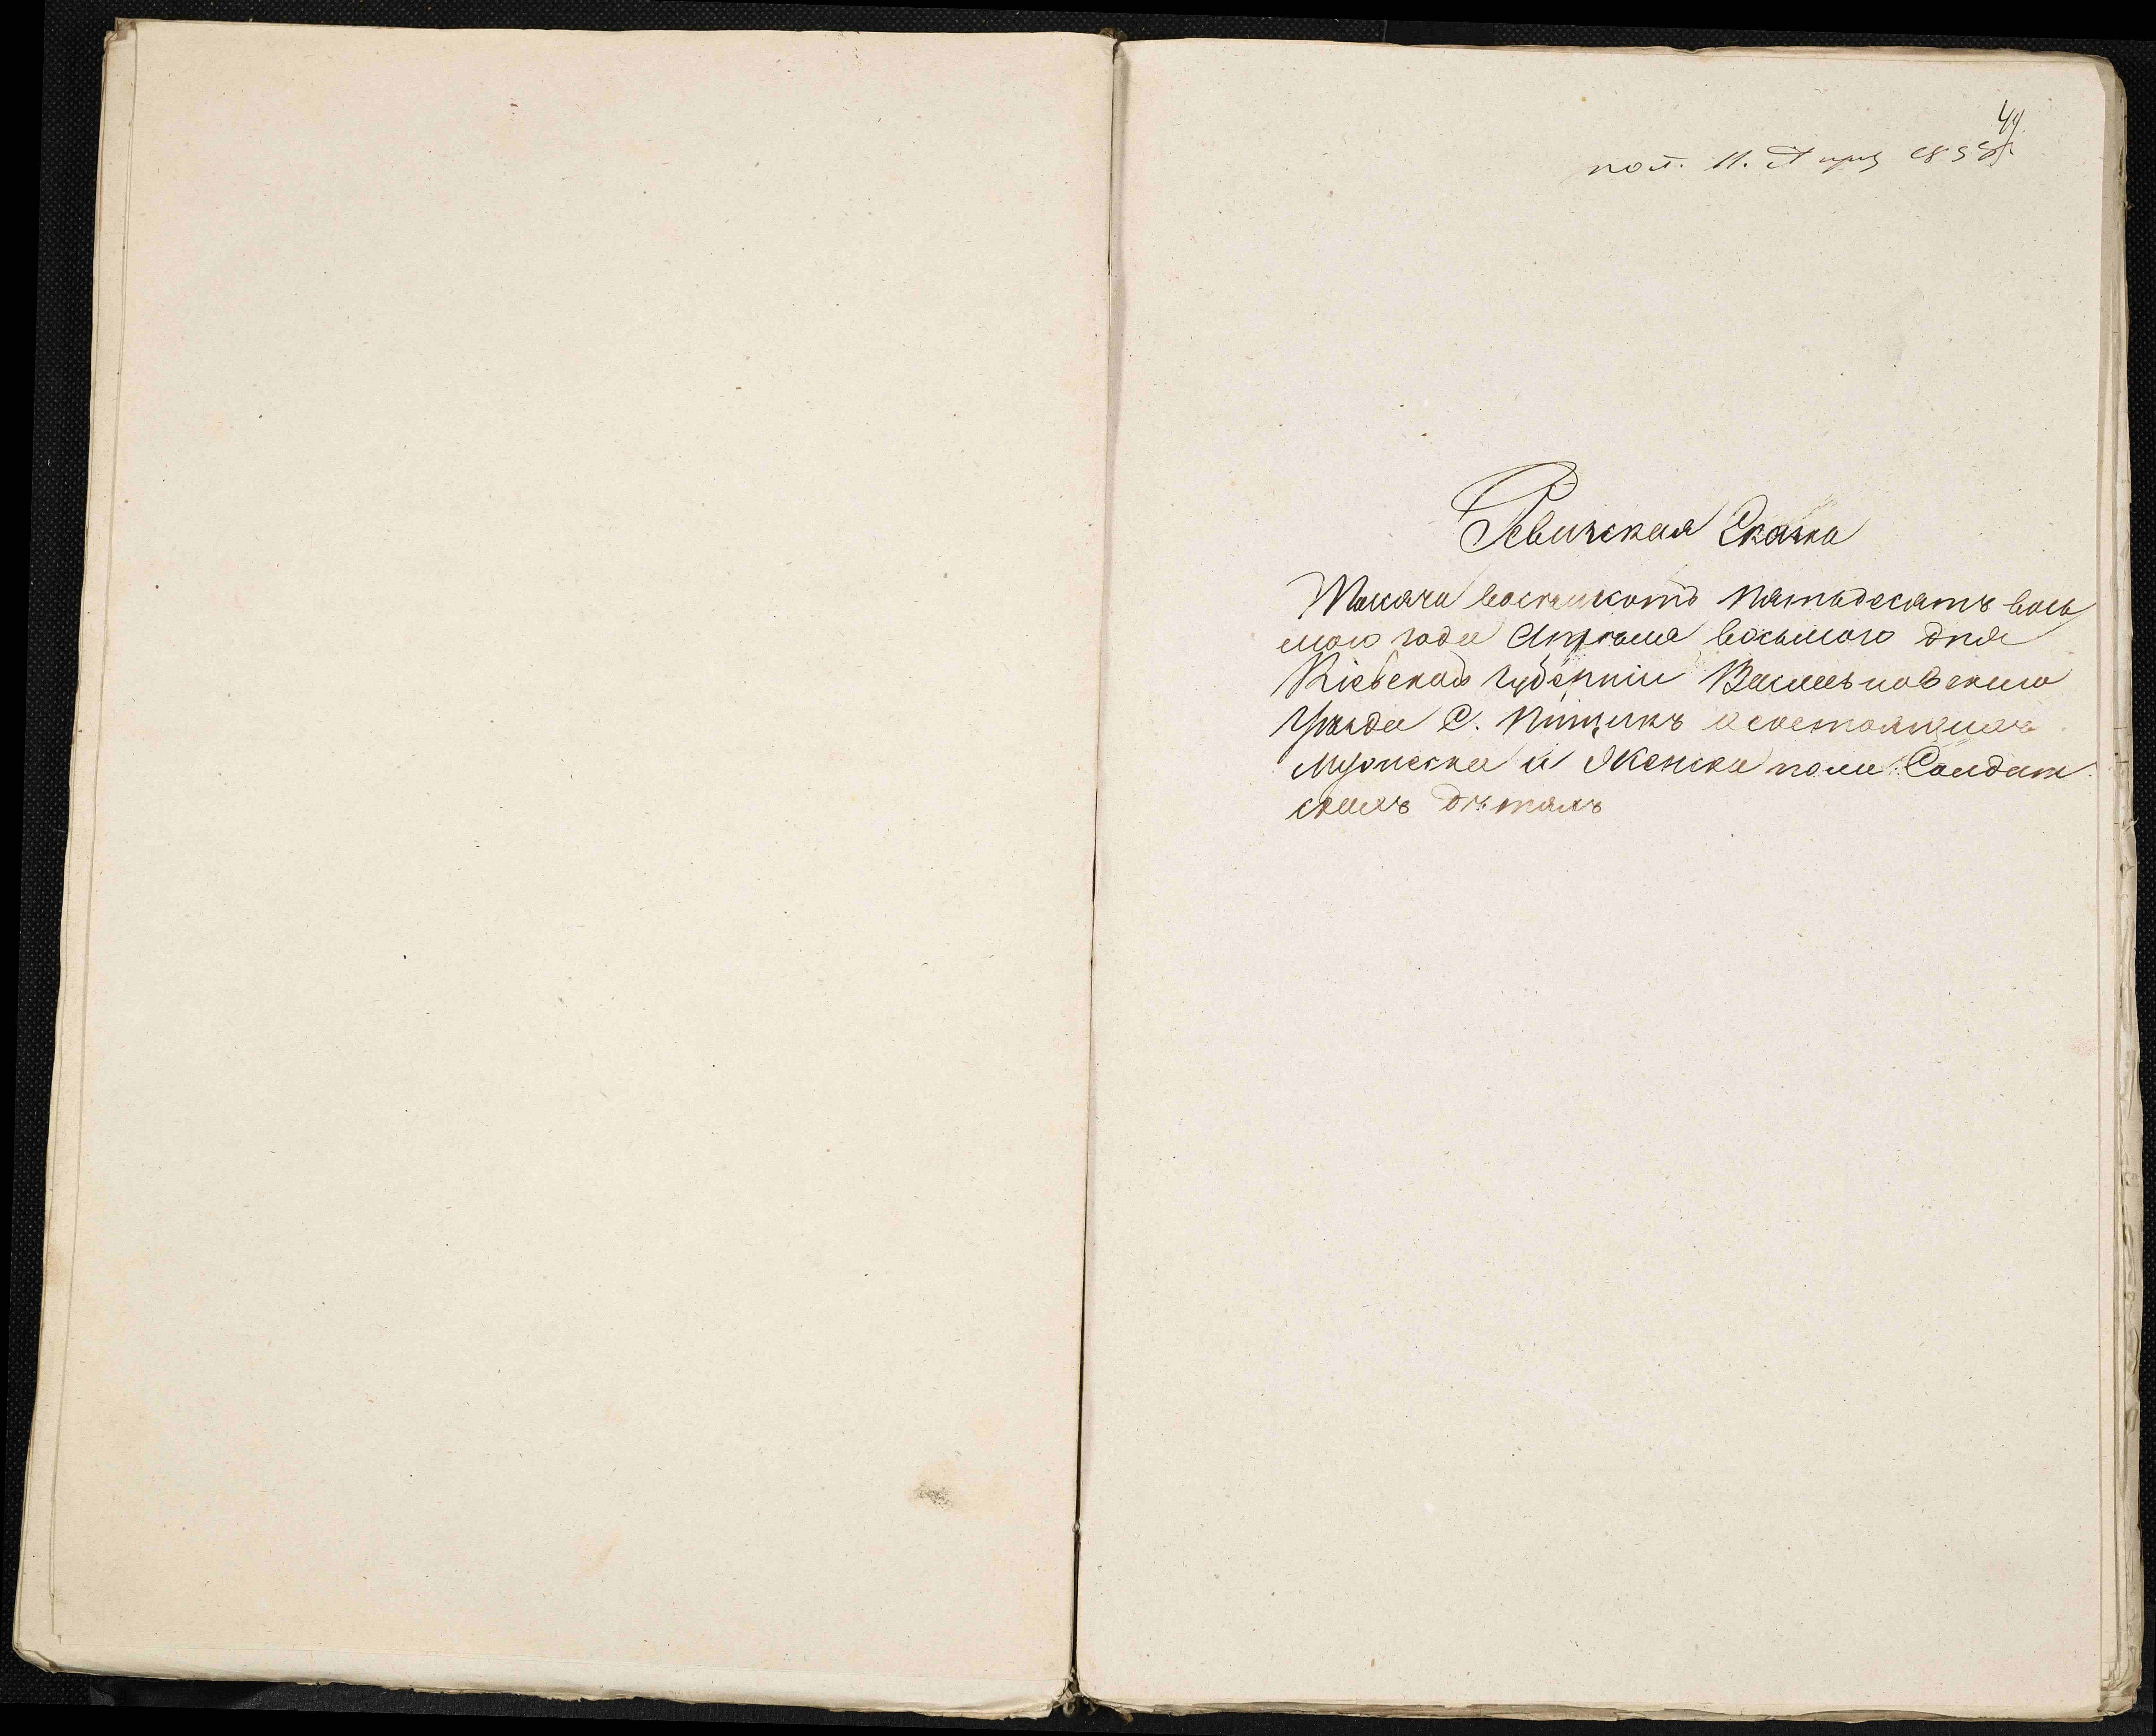 44
пол. 11. Апр. 1858
Ревизская Сказка
Тысяча восемьсотъ пятьдесятъ вось
мого года Апреля восьмого дня
Кіевской губерніи Васильковскаго
Уезда С. Пищикъ о состоящихъ
мужеска и Женска пола Солдат
скихъ детяхъ